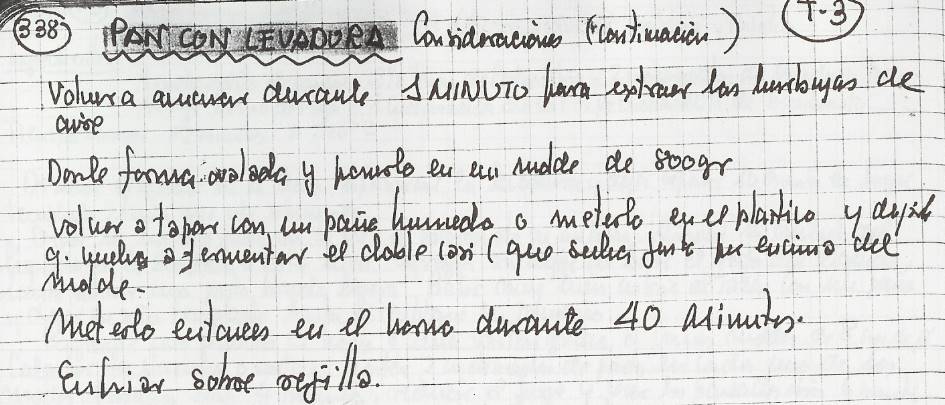 338 PAN CON LEVADURA Consideraciones (continuación) T-3
Volver a amasar durante 1 MINUTO para extraer las burbujas de
aire
Darle forma ovalada y ponerlo en un molde de 800gr
Volver a tapar con un paño humedo o meterlo en el plastico y dejar
q. vuelva a fermentar el doble casi (que suba, justo por encima del
molde.
Meterlo entonces en el horno durante 40 Minutos.
Enfriar sobre rejilla.